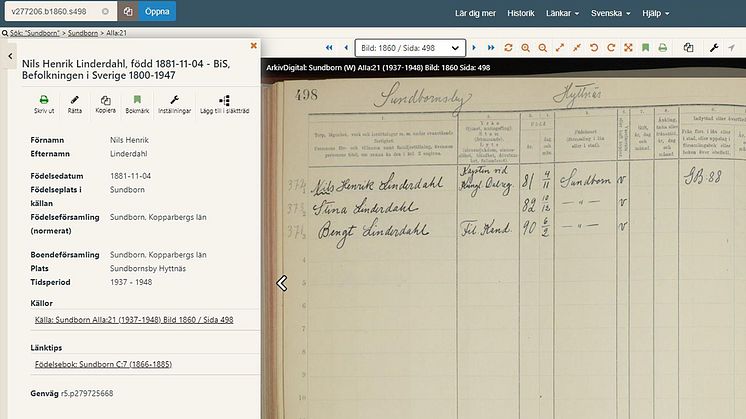 v277206.b1860.s498
Öppna
Lär dig mer Historik Länkar Svenska Hjälp
Sök: "Sundborn" > Sundborn > AIIa:21
Nils Henrik Linderdahl, född 1881-11-04 - BiS,
Befolkningen i Sverige 1800-1947
Skriv ut Rätta Kopiera Bokmärk Inställningar Lägg till i släktträd
Förnamn Nils Henrik
Efternamn Linderdahl
Födelsedatum 1881-11-04
Födelseplats i Sundborn
källan
Födelseförsamling Sundborn, Kopparbergs län
(normerat)
Boendeförsamling Sundborn, Kopparbergs län
Plats Sundbornsby Hyttnäs
Tidsperiod 1937 - 1948
Källor
Källa: Sundborn AIIa:21 (1937-1948) Bild 1860 / Sida 498
Länktips
Födelsebok: Sundborn C:7 (1866-1885)
Genväg r5.p279725668
Bild: 1860 / Sida: 498
ArkivDigital: Sundborn (W) AIIa:21 (1937-1948) Bild: 1860 Sida: 498
498 Sundbornsby Hyttnäs
Nils Henrik Linderdahl 81 4/11 Sundborn v GB. 88
Stina Linderdahl 82 10/12 — " — v
Bengt Linderdahl Fil. Kand. 90 6/2 — " — v